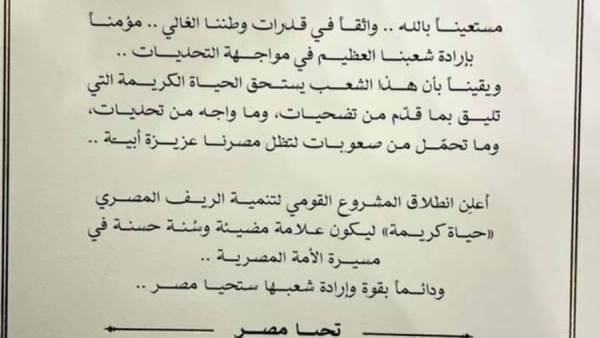 مستعيناً بالله .. واثقاً في قدرات وطننا الغالي .. مؤمناً
بإرادة شعبنا العظيم في مواجهة التحديات ..
ويقيناً بأن هذا الشعب يستحق الحياة الكريمة التي
تليق بما قدّم من تضحيات، وما واجه من تحديات،
وما تحمّل من صعوبات لتظل مصرنا عزيزة أبية ..
أعلن انطلاق المشروع القومي لتنمية الريف المصري
«حياة كريمة» ليكون علامة مضيئة وسُنة حسنة في
مسيرة الأمة المصرية ..
ودائماً بقوة وإرادة شعبها ستحيا مصر ..
تحيا مصر